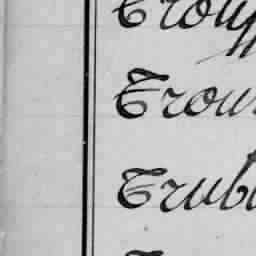 Troup
Trou
Trubl